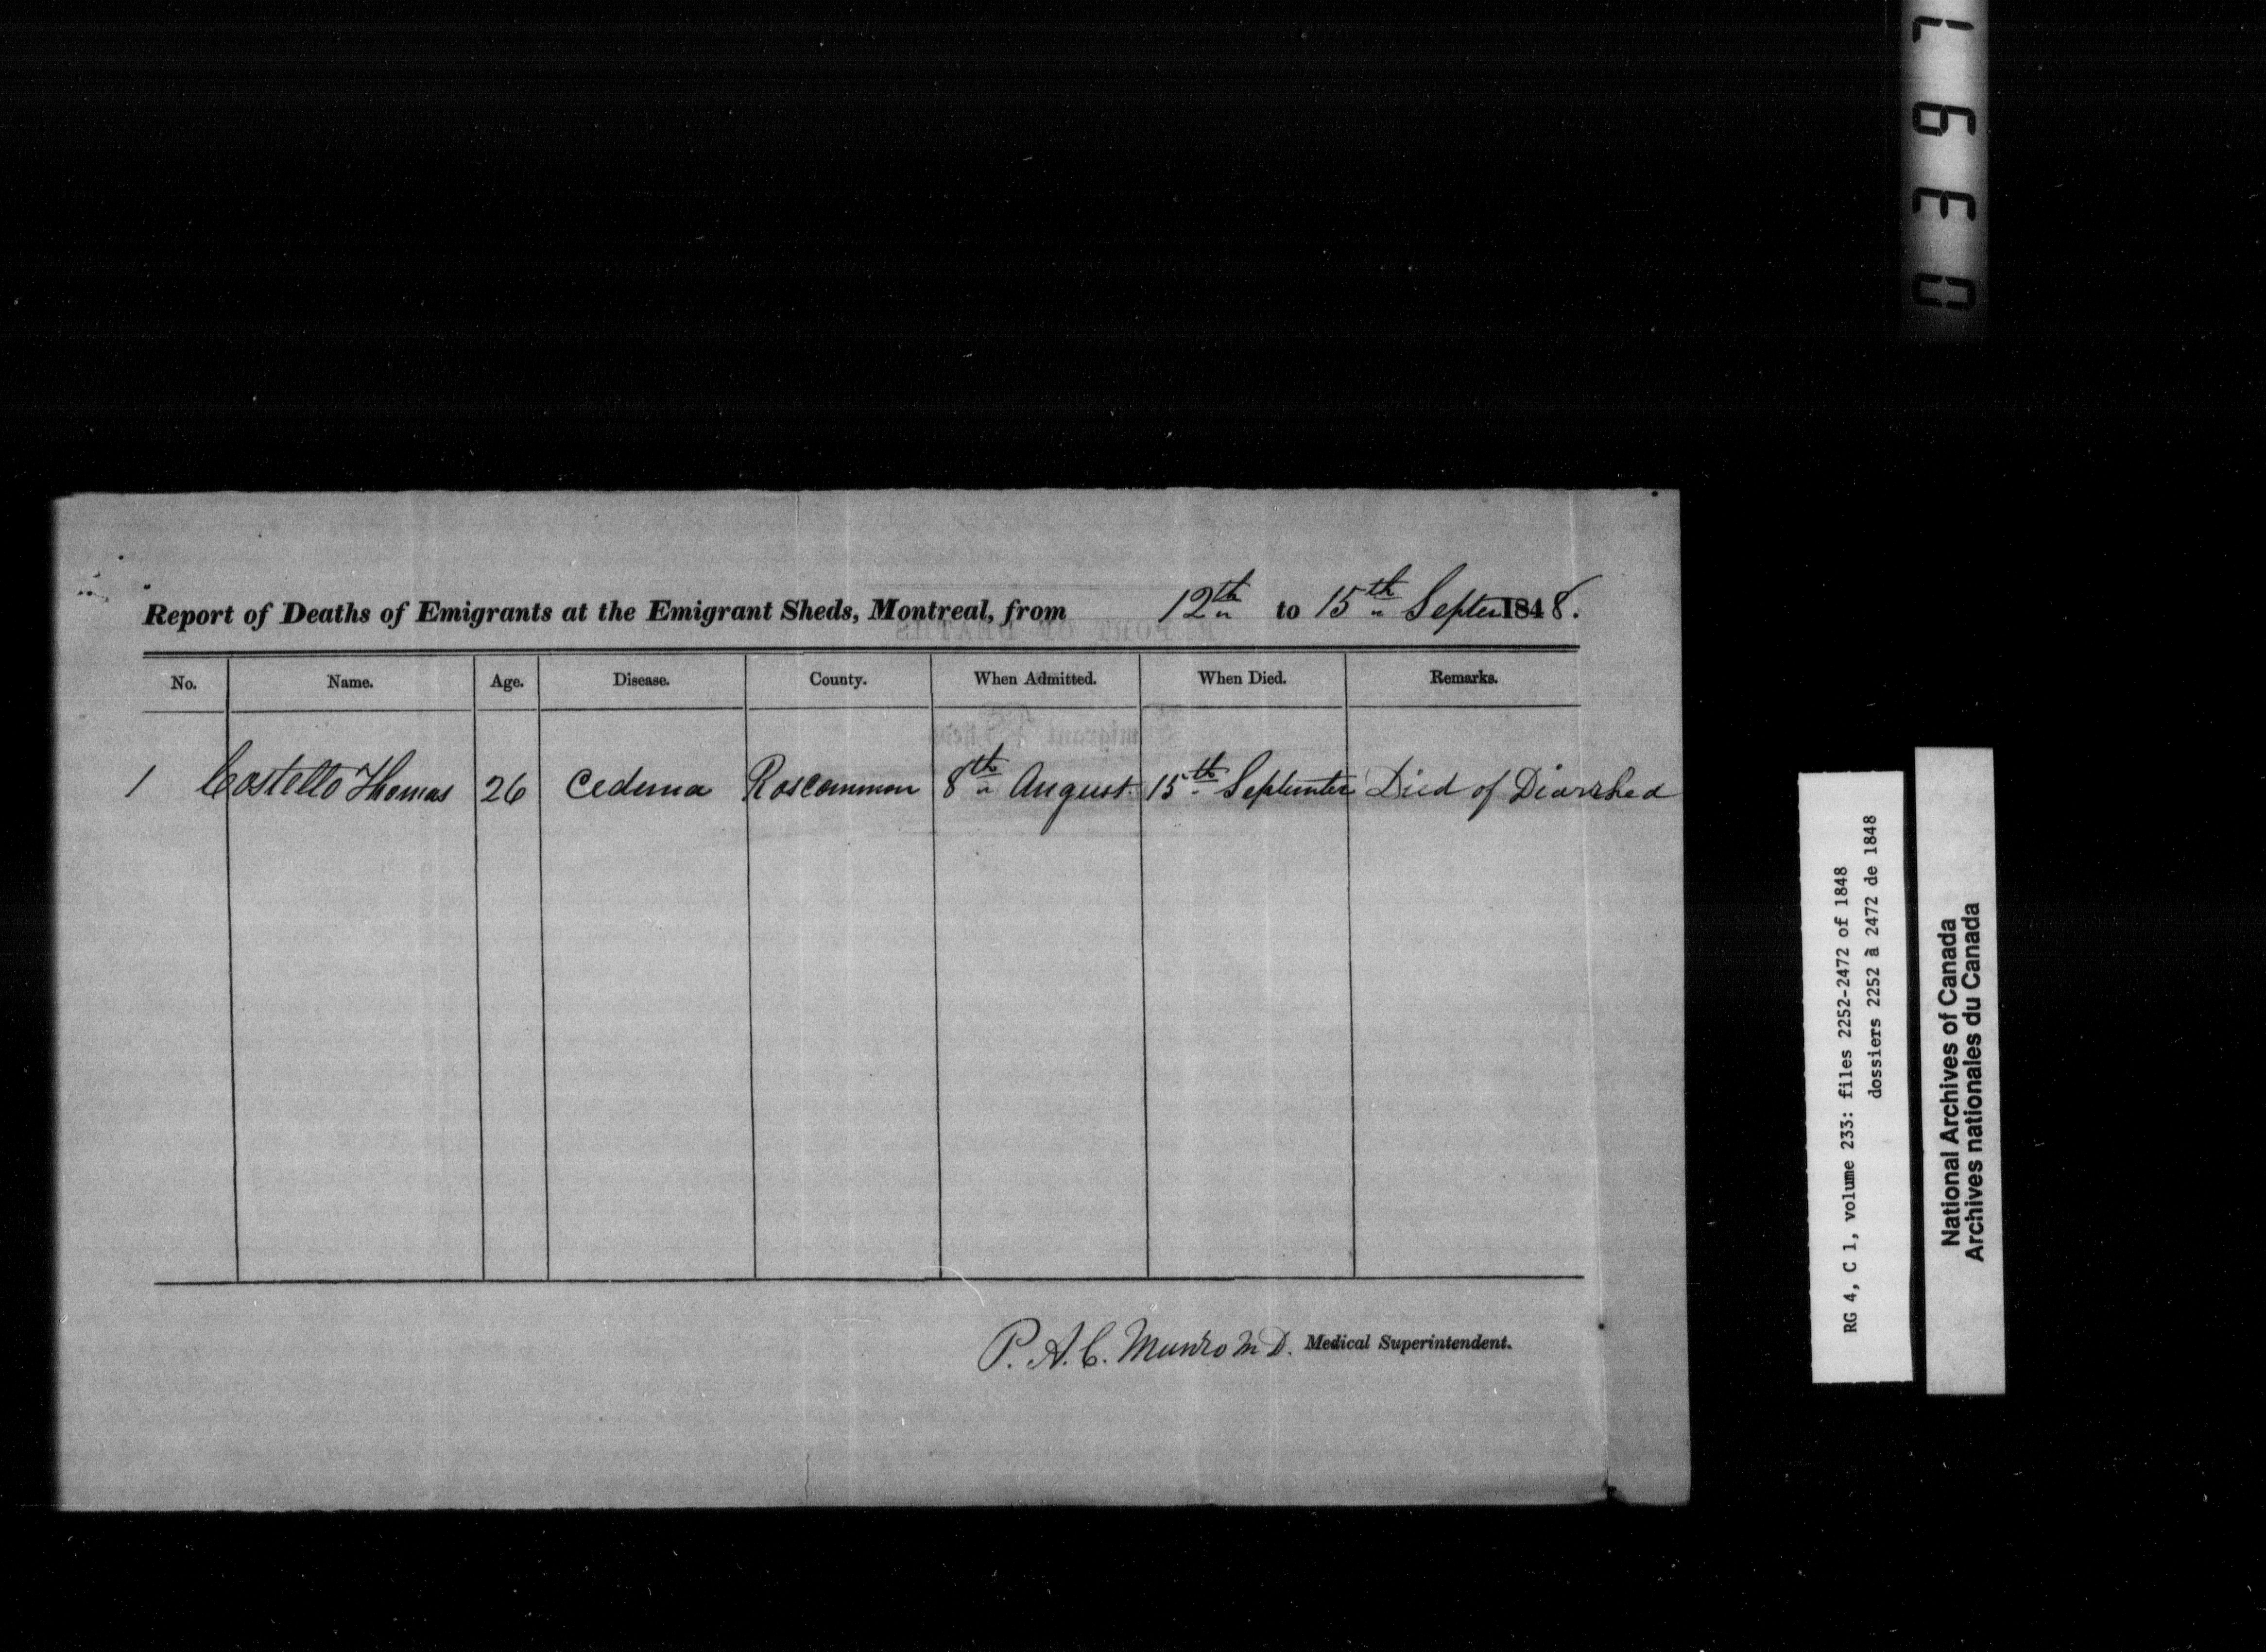 Report of Deaths of Emigrants at the Emigrant Sheds, Montreal, from 12th to 15th Septem 1848.
No. Name. Age. Disease. County. When Admitted. When Died. Remarks.
1 Costello Thomas 26 Œdema Roscommon 8th August 15th September Died of Diarrhea
P. A. C. Munro M D. Medical Superintendent.
RG 4, C 1, volume 233: files 2252-2472 of 1848
dossiers 2252 à 2472 de 1848
National Archives of Canada
Archives nationales du Canada